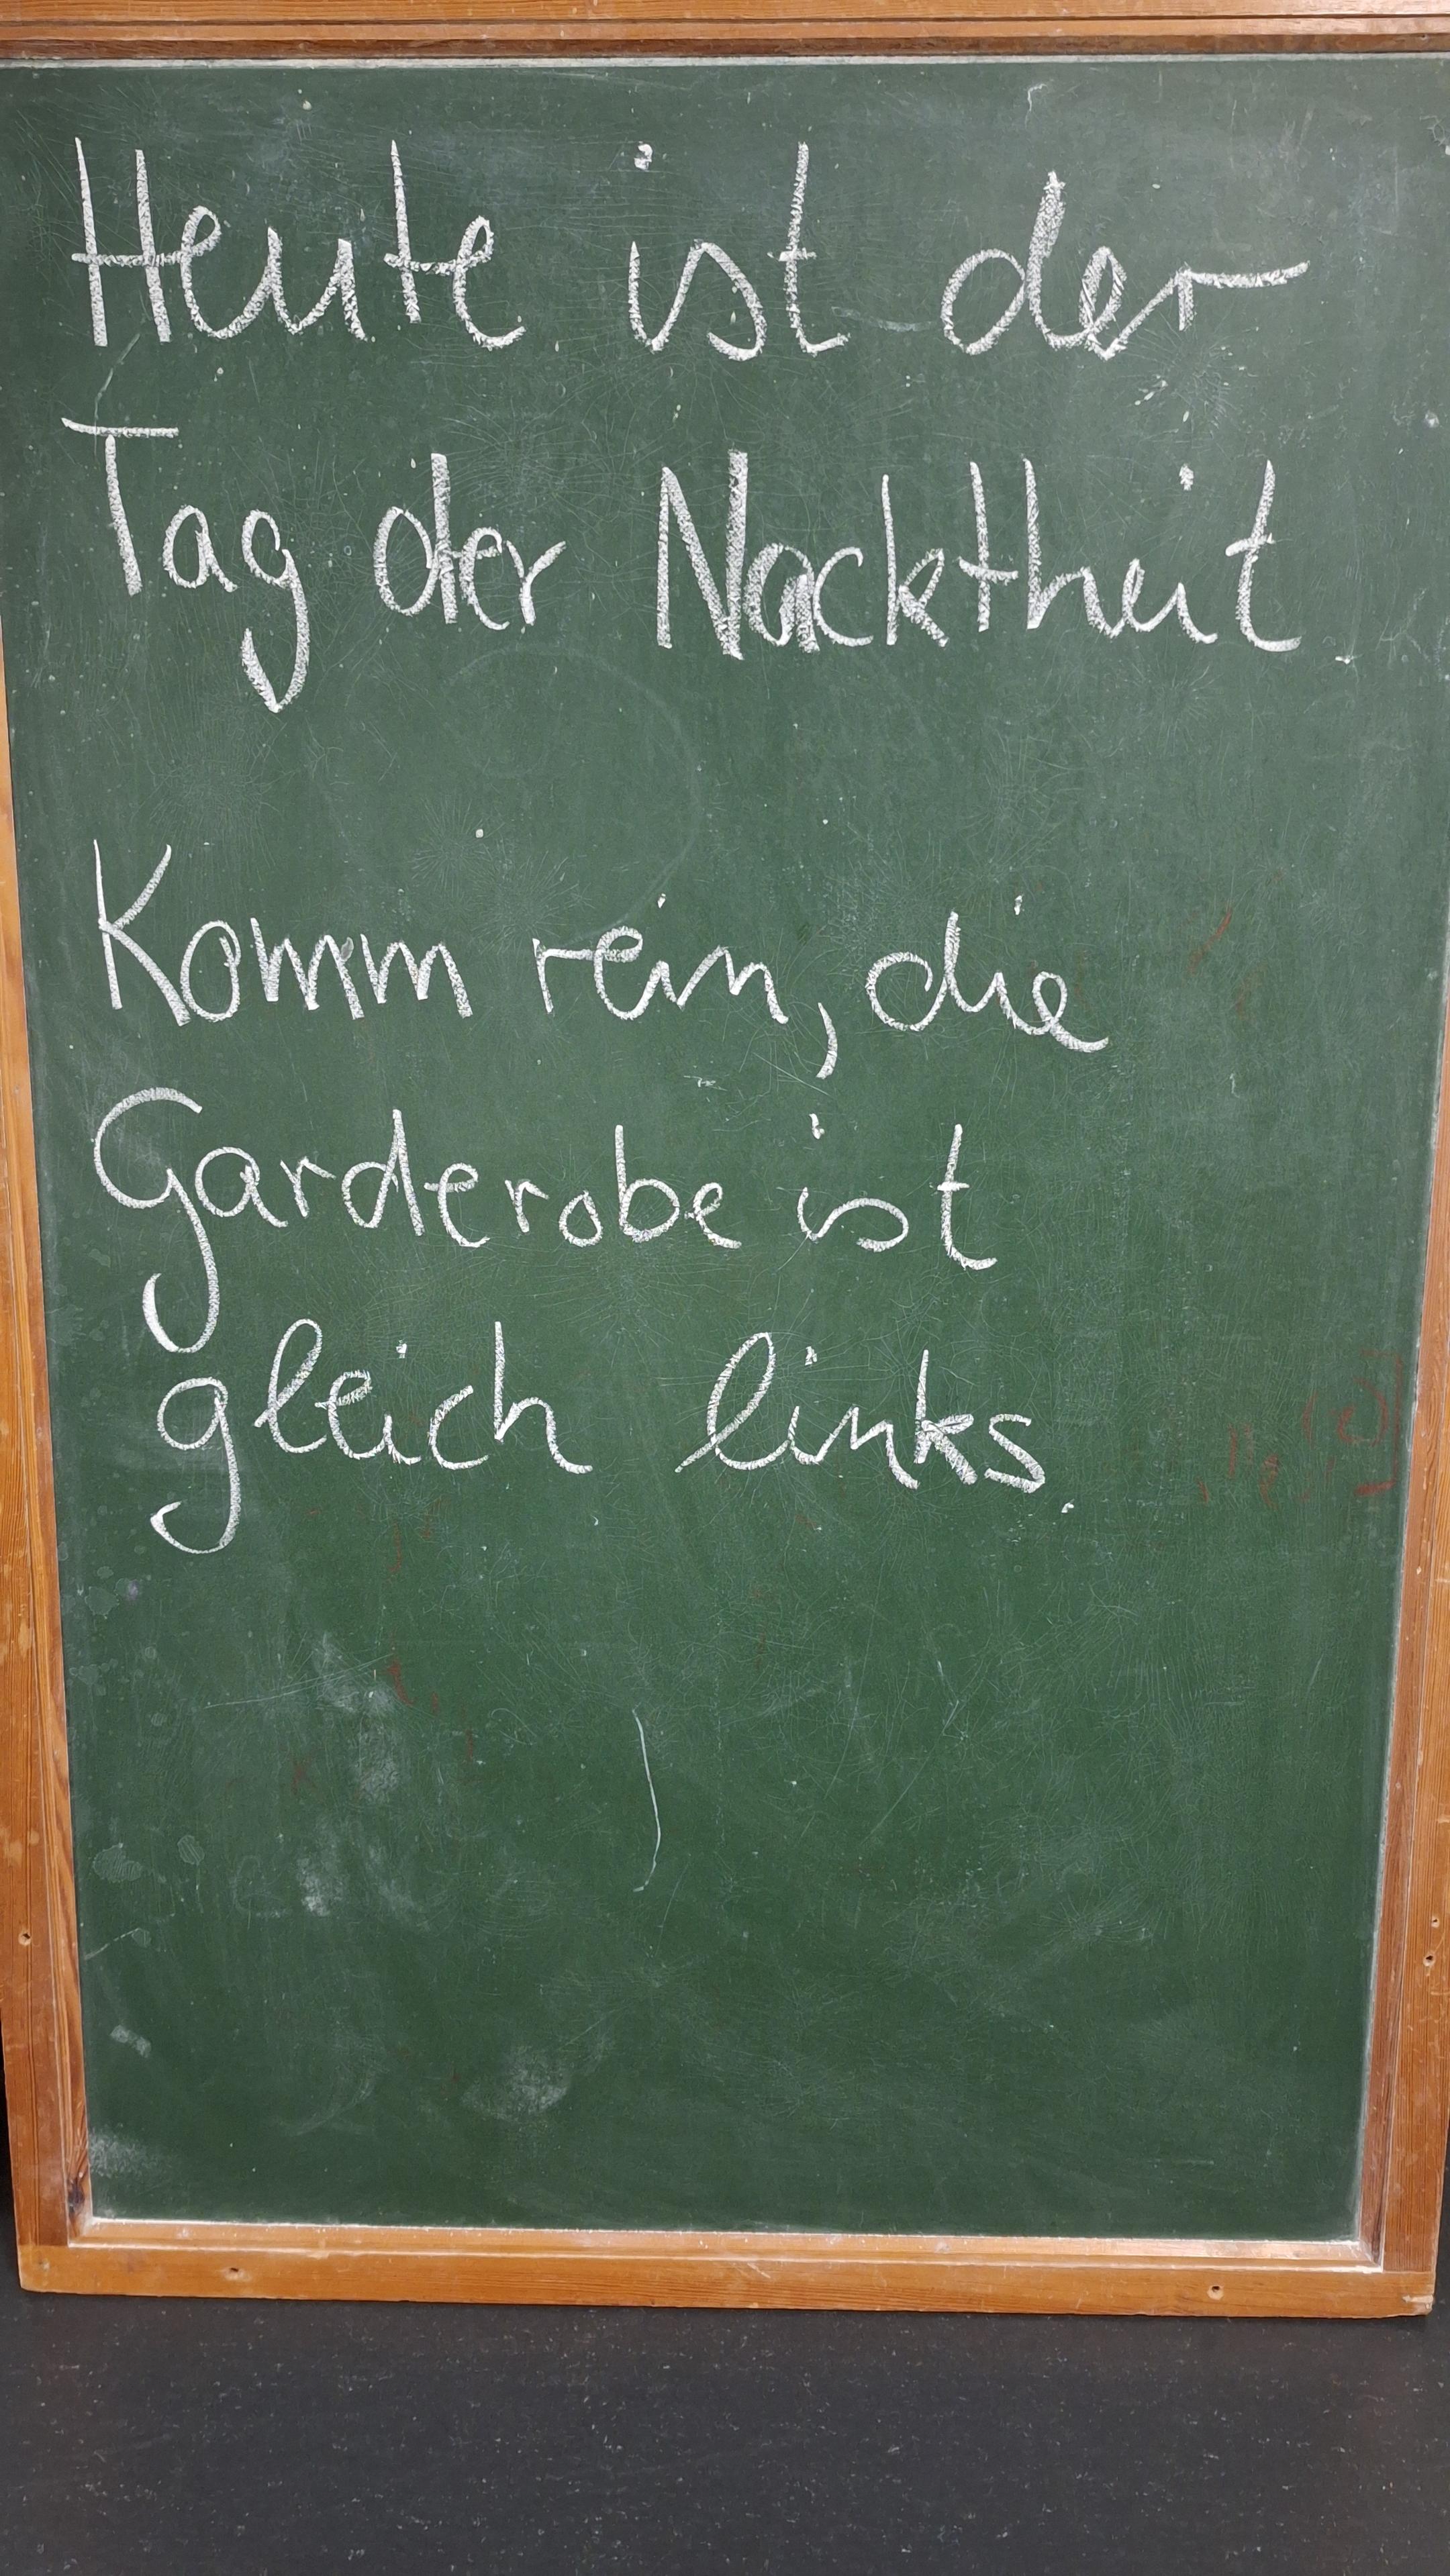 Heute ist der
Tag der Nacktheit.
Komm rein, die
Garderobe ist
gleich links.